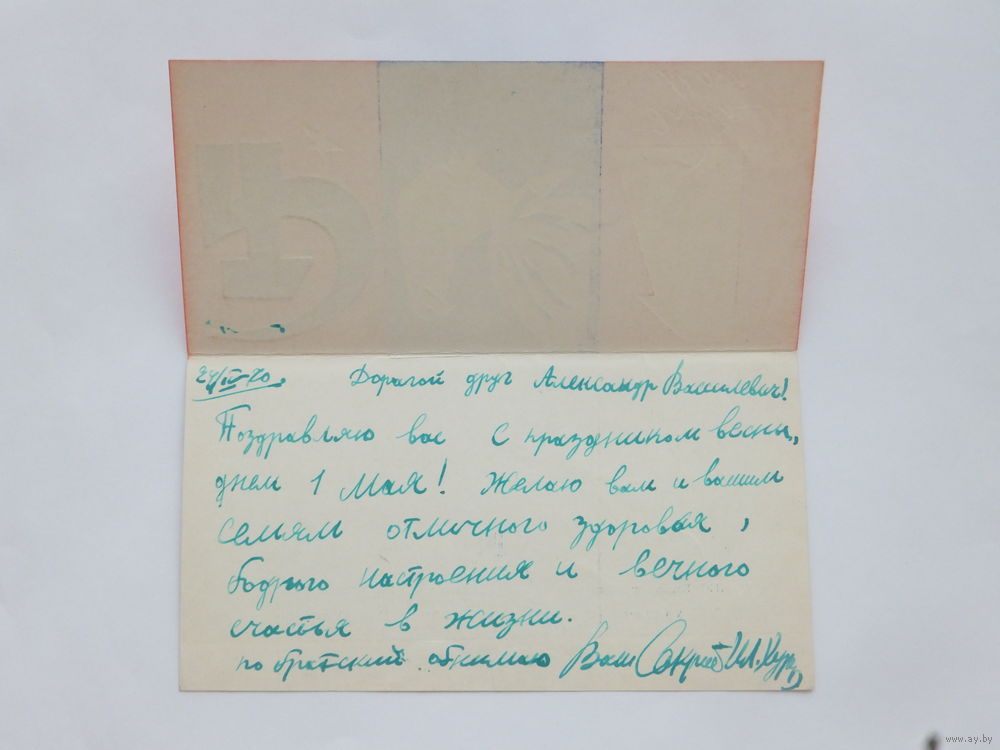 24/IV-70. Дорогой друг Александр Василевич!
Поздравляю вас с праздником весны,
днем 1 мая! Желаю вам и вашим
семьям отличного здоровая,
бодрого настроения и вечного
счастья в жизни.
по братский обнимаю Ваш
www.ay.by